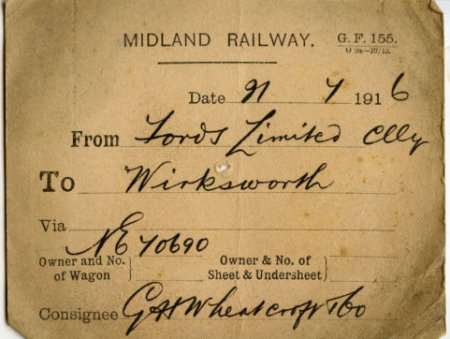 MIDLAND RAILWAY. G. F. 155.
Date 7 1916
From Fords Limited Clly
To Wirksworth
Via
NE 70690
Owner and No. of Wagon } Owner & No. of Sheet & Undersheet }
Consignee G H Wheatcroft & Co